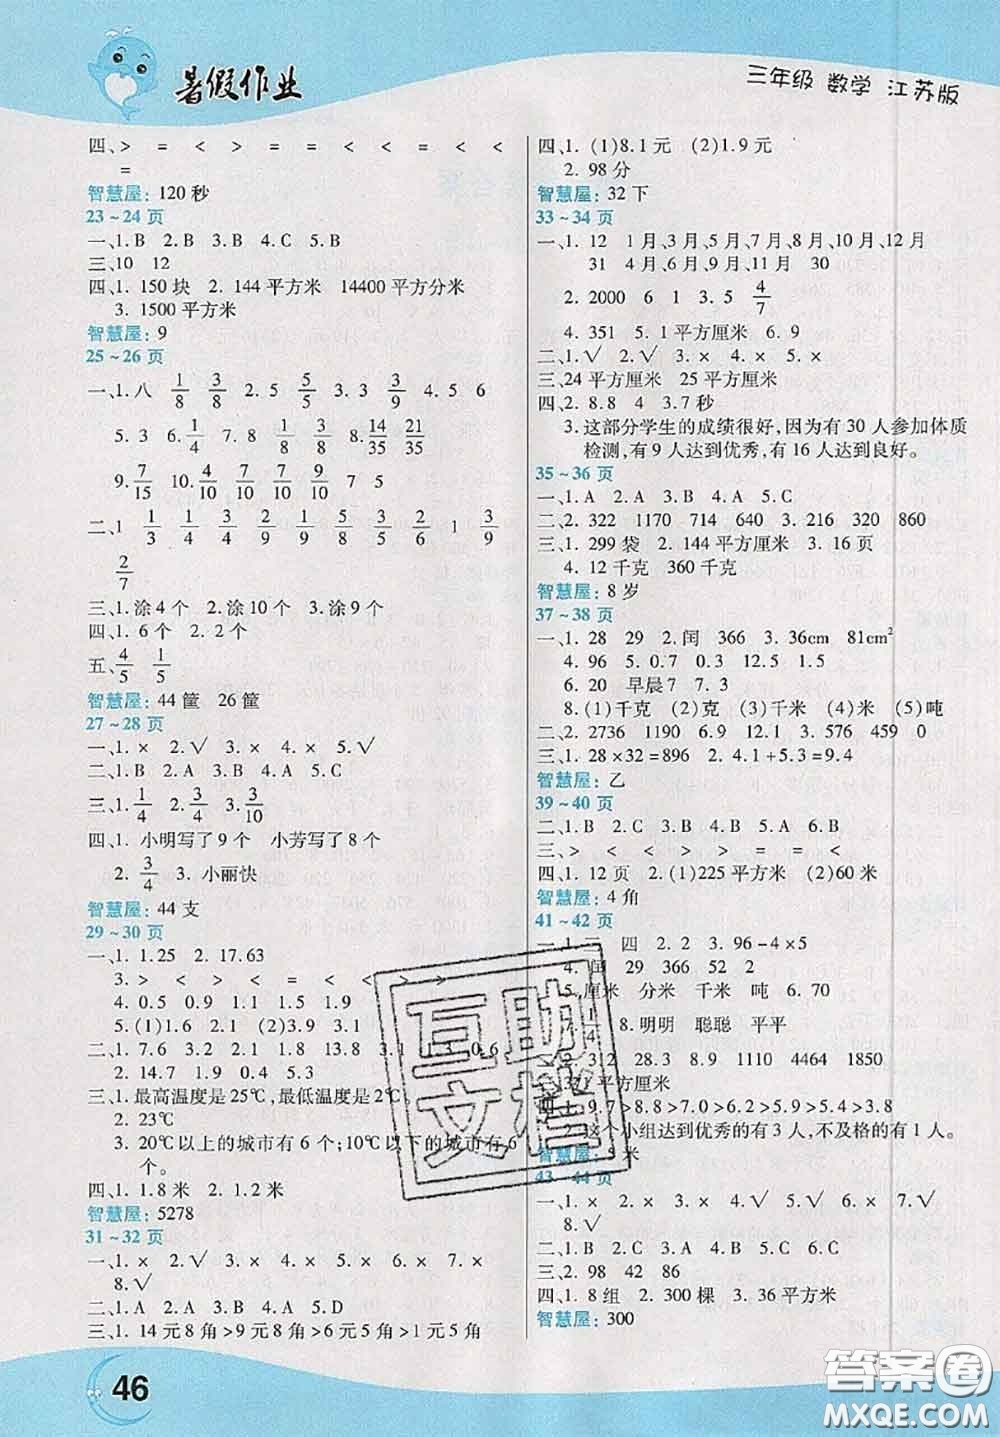 暑假作业
三年级 数学 江苏版
四、> = < > = = < < = < <
=
智慧屋:120秒
23~24页
一、1. B 2. B 3. B 4. C 5. B
三、10 12
四、1. 150块 2. 144平方米 14400平方分米
3. 1500平方米
智慧屋:9
25~26页
一、1. 八 1/8 3/8 2. 5 5/5 3. 3 3/9 4. 5 6
5. 3 6. 1/4 7. 8 1/8 8/8 8. 14/35 21/35
9. 7/15 4/10 7/10 7/10 9/10
二、1 1/3 3/4 2/9 1/9 5/8 3/8 2/4 1 3/9
2/7
三、1. 涂4个 2. 涂10个 3. 涂9个
四、1. 6个 2. 2个
五、4/5 1/5
智慧屋:44筐 26筐
27~28页
一、1. × 2. √ 3. × 4. × 5. √
二、1. B 2. A 3. C 4. B 5. A
三、1. 1/4 2. 3/4 3. 3/10
四、1. 小明写了9个 小芳写了8个
2. 3/4 3. 小丽快
智慧屋:44支
29~30页
一、1. 1.25 2. 17.63
3. > > < < = < < > >
4. 0.5 0.9 1.1 1.5 1.9
5. (1)1.6 2.1 (2)3.9 3.1
二、1. 7.6 3.2 1.8 13.8 3.1 1.3 0.6
2. 14.7 1.9 0.4 5.3
三、1. 最高温度是25℃,最低温度是2℃。
2. 23℃
3. 20℃以上的城市有6个;10℃以下的城市有6
个。
四、1. 1.8米 2. 1.2米
智慧屋:5278
31~32页
一、1. × 2. √ 3. √ 4. × 5. × 6. × 7. ×
8. √
二、1. A 2. B 3. C 4. A 5. D
三、1. 14元8角>9元8角>6元5角>1元5角
四、1. (1)8.1元 (2)1.9元
2. 98分
智慧屋:32下
33~34页
一、1. 12 1月、3月、5月、7月、8月、10月、12月
31 4月、6月、9月、11月 30
2. 2000 6 1 3. 5 4/7
4. 351 5. 1平方厘米 6. 9
二、1. √ 2. √ 3. × 4. × 5. ×
三、24平方厘米 25平方厘米
四、2. 8.8 4 3.7秒
3. 这部分学生的成绩很好,因为有30人参加体质
检测,有9人达到优秀,有16人达到良好。
35~36页
一、1. A 2. A 3. B 4. A 5. C
二、2. 322 1170 714 640 3. 216 320 860
三、1. 299袋 2. 144平方厘米 3. 16页
4. 12千克 360千克
智慧屋:8岁
37~38页
一、1. 28 29 2. 闰 366 3. 36cm 81cm²
4. 96 5. 0.7 0.3 12.5 1.5
6. 20 早晨7 7. 3
8. (1)千克 (2)克 (3)千米 (4)米 (5)吨
二、2. 2736 1190 6.9 12.1 3. 576 459 0
三、1. 28×32=896 2. 4.1+5.3=9.4
智慧屋:乙
39~40页
二、1. B 2. C 3. B 4. B 5. A 6. B
三、> < < > > = = <
四、1. 12页 2. (1)225平方米 (2)60米
智慧屋:4角
41~42页
四 2. 2 3. 96-4×5
4. 闰 29 366 52 2
5. 厘米 分米 千米 吨 6. 70
8. 明明 聪聪 平平
312 28.3 8.9 1110 4464 1850
平方厘米
四、1. 9.7>8.8>7.0>6.8>6.5>5.4>3.8
2. 这个小组达到优秀的有3人,不及格的有1人。
智慧屋:8米
43~44页
一、1. × 2. × 3. × 4. √ 5. √ 6. × 7. √
8. √
二、1. B 2. C 3. A 4. C 5. B
三、2. 98 42 86
四、1. 8组 2. 300棵 3. 36平方米
智慧屋:300
互助
文档
46
答案圈
MXQE.COM